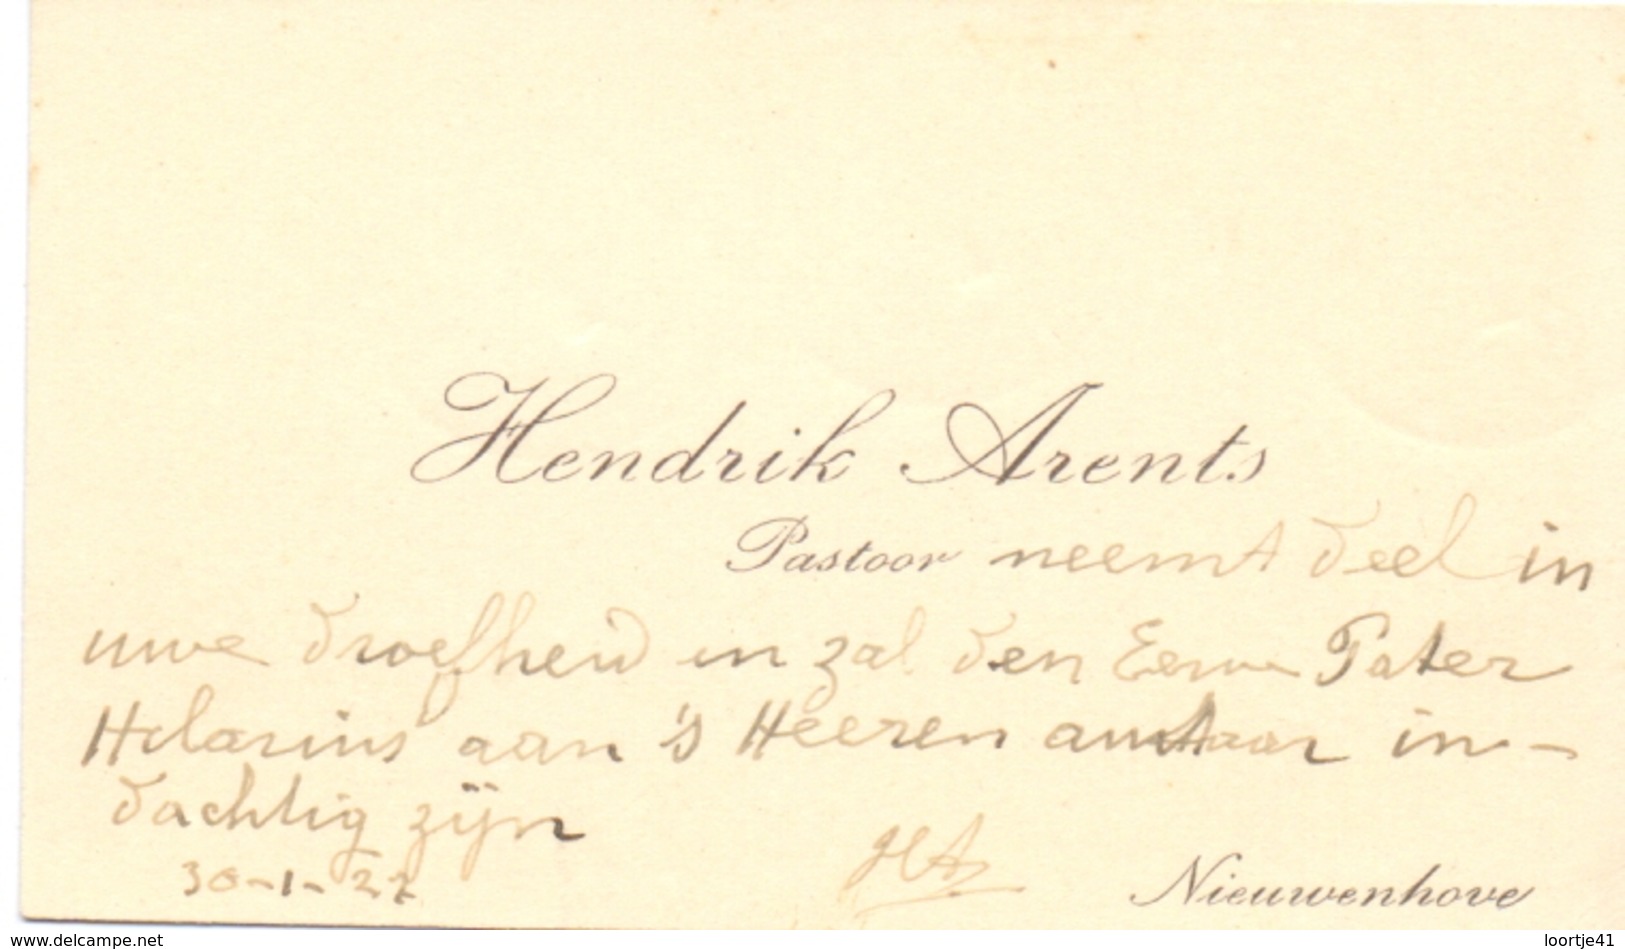 Hendrik Arents
Pastoor neemt deel in
uwe droefheid en zal den Eerw Pater
Hilarius aan 's Heeren autaar in-
dachtig zijn
30-1-27
HA
Nieuwenhove
www.delcampe.net
loortje41